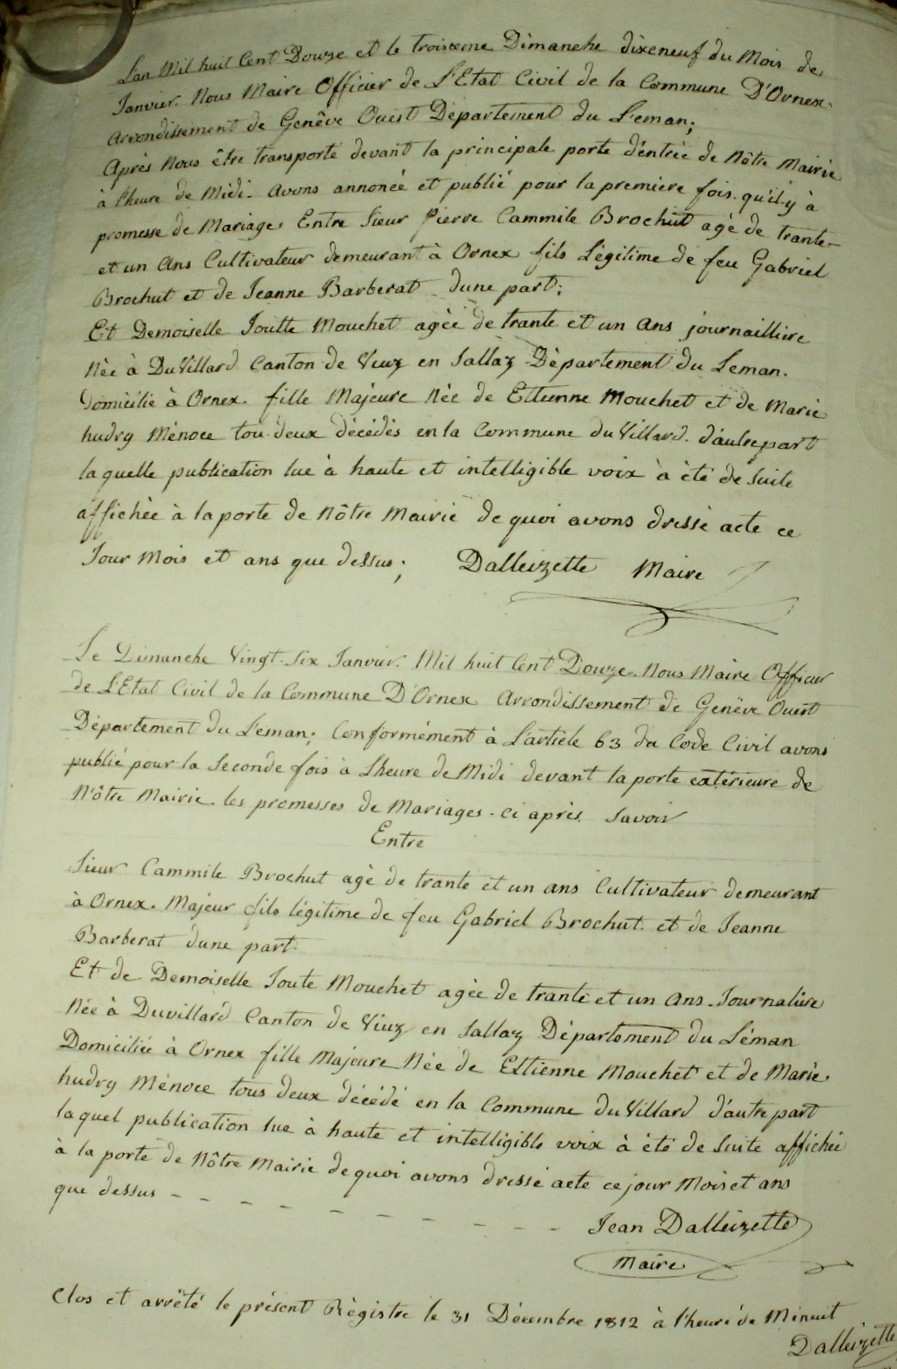 Lan Mil huit Cent Douze et le troisieme Dimanche dixeneuf du Mois de
Janvier. Nous Maire Officier de L'Etat Civil de la Commune D'Ornex.
Arrondissement de Genêve Ouest Département du L'eman;
Après Nous être transporté devant la principale porte d'entrée de Nôtre Mairie
à l'heure de Midi. Avons annoncé et publié pour la premiere fois. qu'il y à
promesse de Mariage, Entre Sieur Pierre Cammile Brochut agé de trante
et un Ans Cultivateur demeurant à Ornex fils Légitime de feu Gabriel
Brochut et de Jeanne Barberat dune part;
Et Demoiselle Joutte Mouchet agée de trante et un Ans journailliere
Née à DuVillard Canton de Viuz en Sallaz Département du Leman.
Domicilié à Ornex. fille Majeure Née de Ettienne Mouchet et de Marie
hudry Ménoce tou deux décédés en la Commune du Villard. d'autre part
laquelle publication lue à haute et intelligible voix à été de Suite
affichée à la porte de Nôtre Mairie de quoi avons dressé acte ce
Jour Mois et ans que dessus; Dalleizette Maire
Le Dimanche Vingt-Six Janvier. Mil huit Cent Douze. Nous Maire Officier
de L'Etat Civil de la Commune D'Ornex Arrondissement de Genêve Ouest
Département du Leman; Conformément à L'article 63 du Code Civil avons
publié pour la Seconde fois à L'heure de Midi devant la porte extérieure de
Nôtre Mairie. les promesses de Mariages. ci après Savoir
Entre
Sieur Cammile Brochut agé de trante et un ans Cultivateur demeurant
à Ornex. Majeur fils légitime de feu Gabriel Brochut. et de Jeanne
Barberat dune part.
Et de Demoiselle Joute Mouchet agée de trante et un Ans. Journalière
Née à Duvillard Canton de Viuz en Sallaz Département du Léman
Domiciliée à Ornex fille Majeure Née de Ettienne Mouchet et de Marie
hudry Ménoce tous deux décédé en la Commune du Villard d'autre part
laquel publication lue à haute et intelligible voix à été de Suite affichée
à la porte de Nôtre Mairie de quoi avons dressé acte ce jour Mois et ans
que dessus - - - - - - - - - - -
Jean Dalleizette
Maire
Clos et arrêté le présent Régistre le 31 Décembre 1812 à l'heure de Minuit
Dalleizette